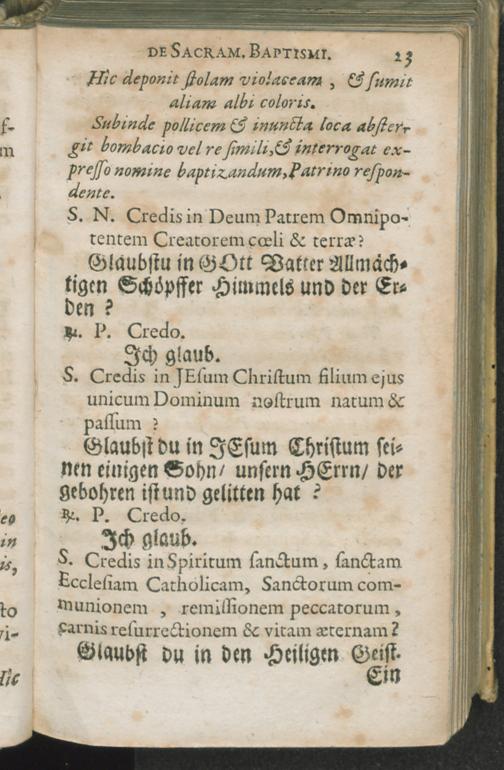 DE SACRAM. BAPTISMI. 23
Hîc deponit ſtolam violaceam, & ſumit
aliam albi coloris.
Subinde pollicem & inuncta loca abſter-
git bombacio vel re ſimili, & interrogat ex-
preſſo nomine baptizandum, Patrino reſpon-
dente.
S. N. Credis in Deum Patrem Omnipo-
tentem Creatorem cœli & terræ?
Glaubſtu in GOtt Vatter Allmäch-
tigen Schöpffer Himmels und der Er-
den ?
℟. P. Credo.
Ich glaub.
S. Credis in JEſum Chriſtum filium ejus
unicum Dominum noſtrum natum &
paſſum ?
Glaubſt du in JEſum Chriſtum ſei-
nen einigen Sohn/ unſern HErrn/ der
gebohren iſt und gelitten hat ?
℟. P. Credo.
Ich glaub.
S. Credis in Spiritum ſanctum, ſanctam
Eccleſiam Catholicam, Sanctorum com-
munionem , remiſſionem peccatorum,
carnis reſurrectionem & vitam æternam?
Glaubſt du in den Heiligen Geiſt.
Ein